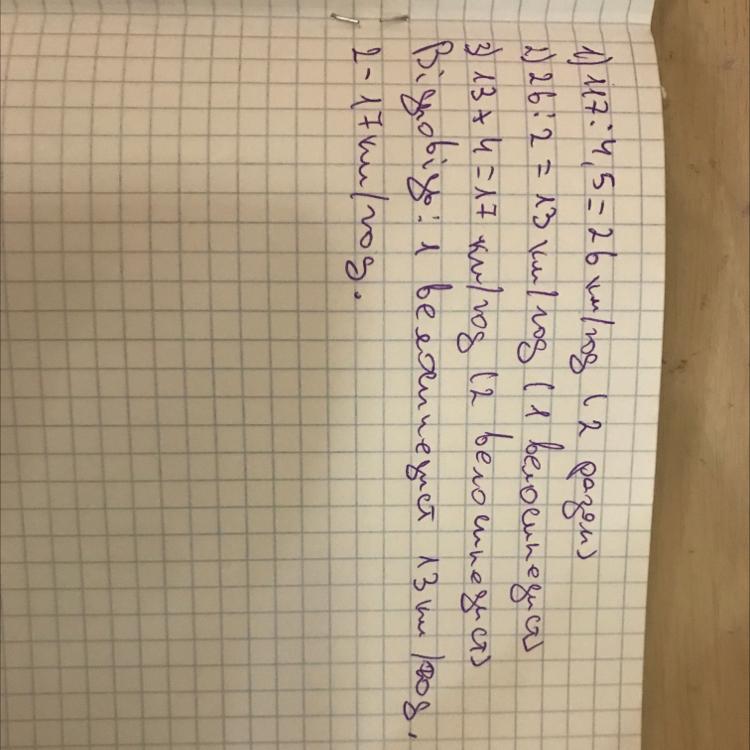 1) 117 : 4,5 = 26 км/год (2 разом)
2) 26 : 2 = 13 км/год (1 велосипедист)
3) 13 + 4 = 17 км/год (2 велосипедист)
Відповідь: 1 велосипедист 13 км/год,
2 - 17 км/год.